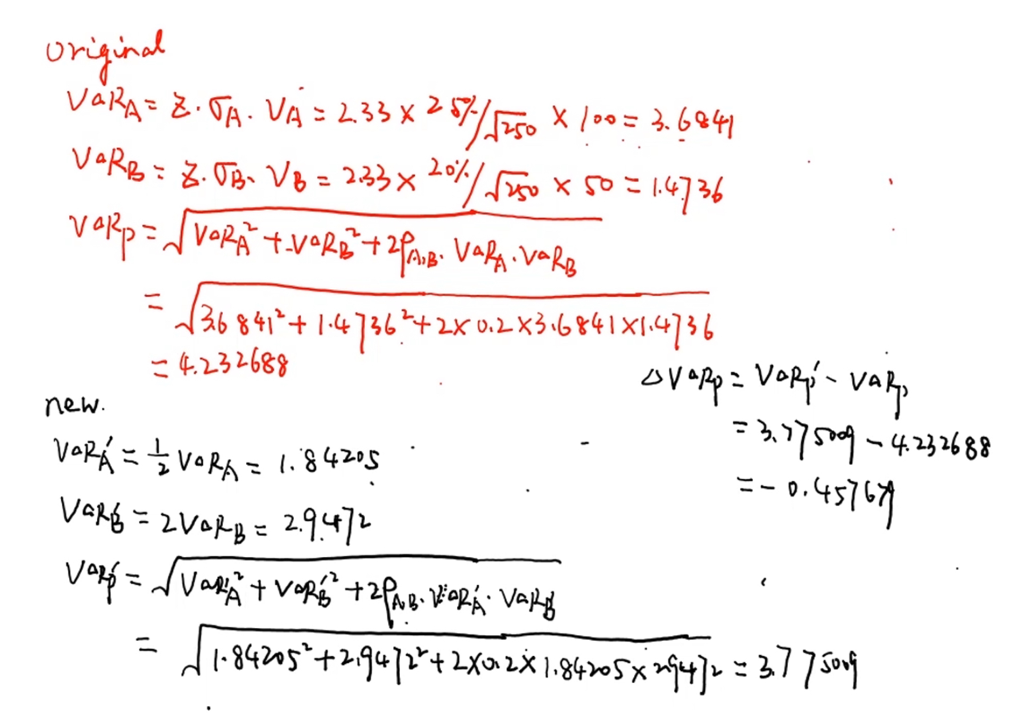 original
VaR_A = Z · σ_A · V_A = 2.33 × 25%/√250 × 100 = 3.6841
VaR_B = Z · σ_B · V_B = 2.33 × 20%/√250 × 50 = 1.4736
VaR_P = √(VaR_A² + VaR_B² + 2ρ_A,B · VaR_A · VaR_B)
= √(3.6841² + 1.4736² + 2×0.2×3.6841×1.4736)
= 4.232688
new.
VaR_A' = 1/2 VaR_A = 1.84205
VaR_B' = 2VaR_B = 2.9472
VaR_P' = √(VaR_A'² + VaR_B'² + 2ρ_A,B · VaR_A' · VaR_B')
= √(1.84205² + 2.9472² + 2×0.2×1.84205×2.9472) = 3.775009
△VaR_P = VaR_P' - VaR_P
= 3.775009 - 4.232688
= -0.457679